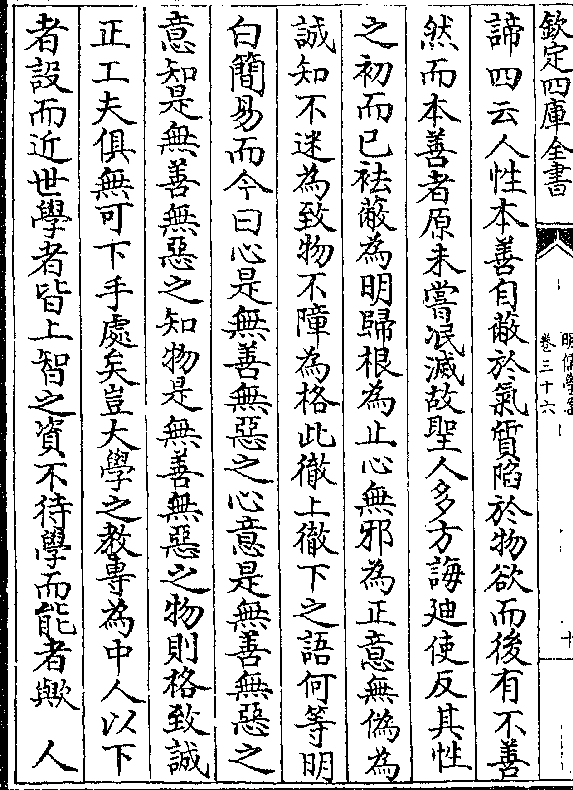 欽定四庫全書
明儒學案
卷三十六
十
諦四云人性本善自蔽於氣質陷於物欲而後有不善
然而本善者原未嘗泯滅故聖人多方誨廸使反其性
之初而已袪蔽為明歸根為止心無邪為正意無偽為
誠知不迷為致物不障為格此徹上徹下之語何等明
白簡易而今曰心是無善無惡之心意是無善無惡之
意知是無善無惡之知物是無善無惡之物則格致誠
正工夫俱無可下手處矣豈大學之教專為中人以下
者設而近世學者皆上智之資不待學而能者歟　人